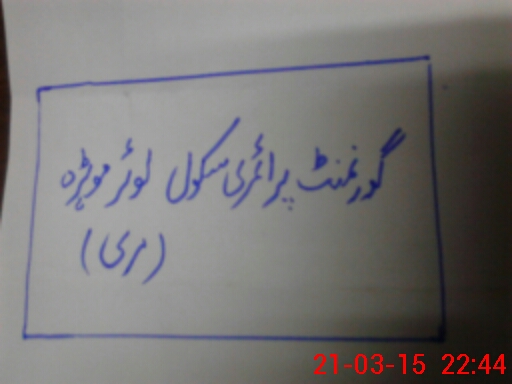 گورنمنٹ پرائمری سکول لوئر موہڑہ
(مری)
21-03-15 22:44